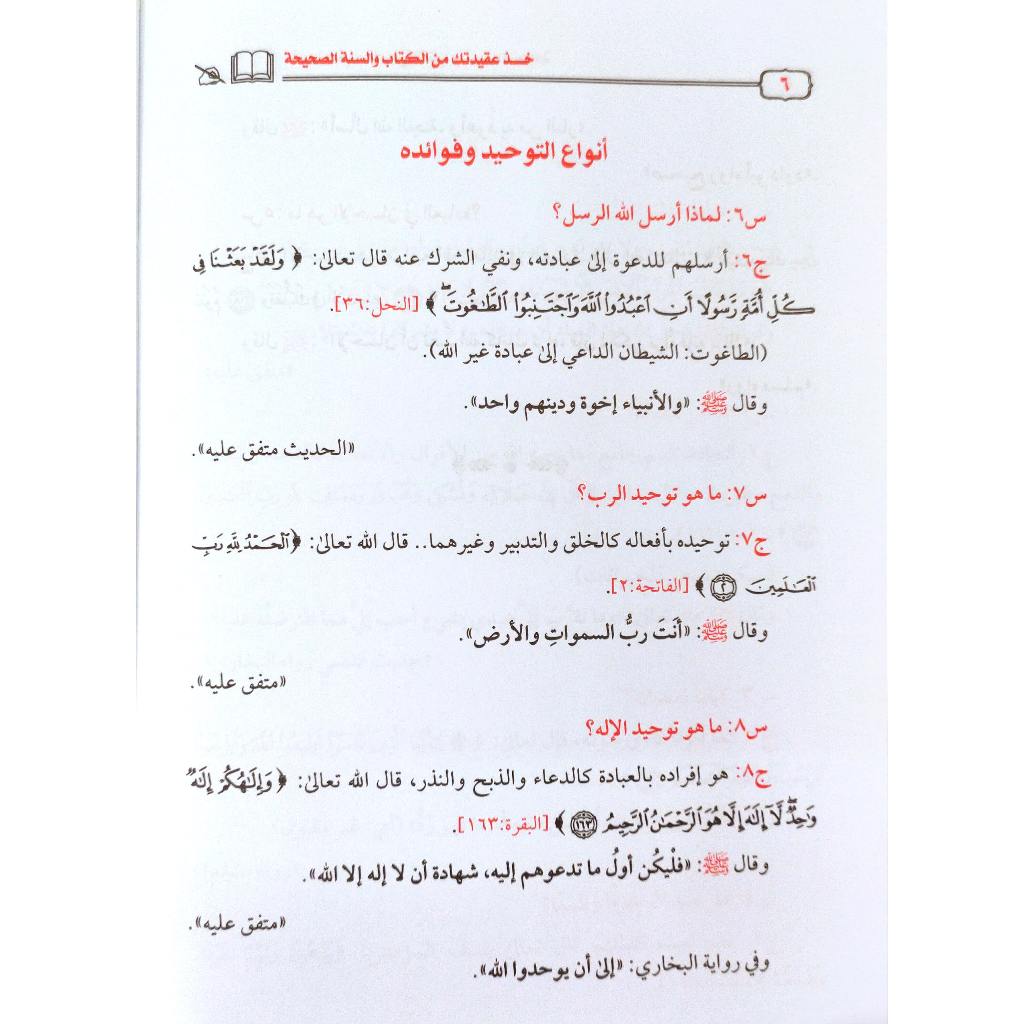 خـــذ عقيدتك من الكتاب والسنة الصحيحة
٦
أنواع التوحيد وفوائده
س٦: لماذا أرسل الله الرسل؟
ج٦: أرسلهم للدعوة إلىٰ عبادته، ونفي الشرك عنه قال تعالىٰ: ﴿ وَلَقَدْ بَعَثْنَا فِي
كُلِّ أُمَّةٍ رَّسُولًا أَنِ ٱعْبُدُوا۟ ٱللَّهَ وَٱجْتَنِبُوا۟ ٱلطَّٰغُوتَ ۖ ﴾ [النحل:٣٦].
(الطاغوت: الشيطان الداعي إلىٰ عبادة غير الله).
وقال ﷺ: «والأنبياء إخوة ودينهم واحد».
«الحديث متفق عليه».
س٧: ما هو توحيد الرب؟
ج٧: توحيده بأفعاله كالخلق والتدبير وغيرهما.. قال الله تعالىٰ: ﴿ ٱلْحَمْدُ لِلَّهِ رَبِّ
ٱلْعَٰلَمِينَ ٢ ﴾ [الفاتحة:٢].
وقال ﷺ: «أَنتَ ربُّ السموات والأرض».
«متفق عليه».
س٨: ما هو توحيد الإله؟
ج٨: هو إفراده بالعبادة كالدعاء والذبح والنذر، قال الله تعالىٰ: ﴿ وَإِلَٰهُكُمْ إِلَٰهٌ
وَٰحِدٌ ۖ لَّآ إِلَٰهَ إِلَّا هُوَ ٱلرَّحْمَٰنُ ٱلرَّحِيمُ ١٦٣ ﴾ [البقرة:١٦٣].
وقال ﷺ: «فلْيكُن أولُ ما تدعوهم إليه، شهادة أن لا إله إلا الله».
«متفق عليه».
وفي رواية البخاري: «إلىٰ أن يوحدوا الله».